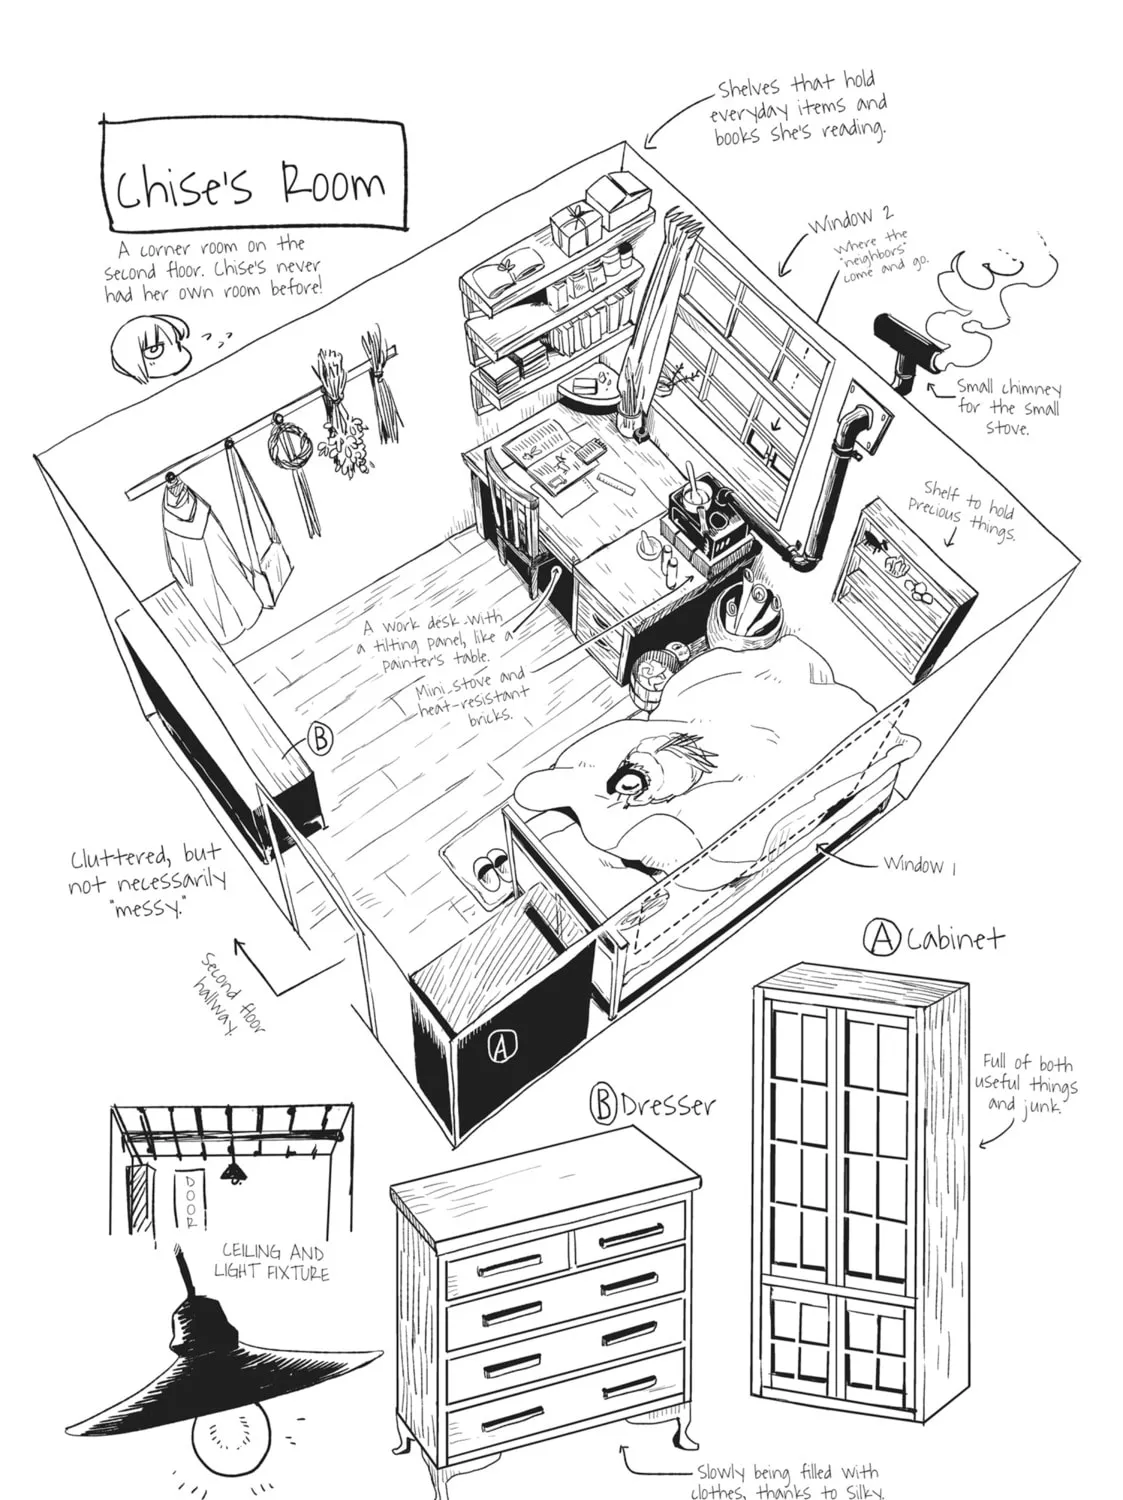 Shelves that hold
everyday items and
books she's reading.
Chise's Room
A corner room on the
second floor. Chise's never
had her own room before!
Window 2
Where the
"neighbors"
come and go.
Small chimney
for the small
stove.
Shelf to hold
precious things.
A work desk with
a tilting panel, like a
painter's table.
Mini-stove and
heat-resistant
bricks.
B
Cluttered, but
not necessarily
"messy."
Second floor
hallway.
Window 1
A
A Cabinet
Full of both
useful things
and junk.
B Dresser
DOOR
CEILING AND
LIGHT FIXTURE
Slowly being filled with
clothes, thanks to Silky.